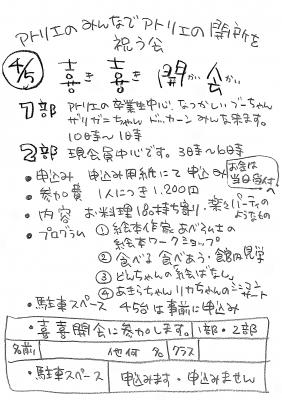 アトリエのみんなでアトリエの開所を
祝う会
4/5 喜き喜き開かい会かい
1部 アトリエの卒業生中心、なつかしいブーちゃん
ガリガニちゃん ドッカーン みんな来ます。
10時〜1時
2部 現会員中心です。3時〜6時
・申込み 申込み用紙にて申込み
お金は
当日受付へ
・参加費 1人につき1.200円
・内容 お料理1品持ち寄り・楽しいパーティの
ようなもの
・プログラム ①絵本作家あべ弘士の
絵本ワークショップ
②食べる 食べあう・館内見学
③どんちゃんの絵ばなし
④あきらちゃんリカちゃんのミニコンサート
・駐車スペース 45台は事前に申込み
・喜喜開会に参加します。1部・2部
名前 他何名 クラス
・駐車スペース 申込みます・申込みません